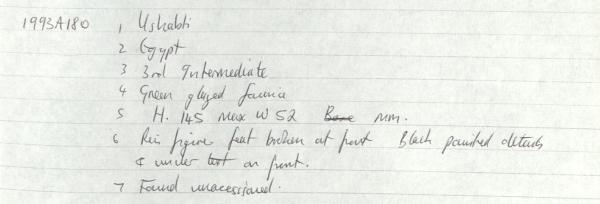 1993A180 1 Ushabti
2 Egypt
3 3rd Intermediate
4 Green glazed faience
5 H. 145 max W 52 Base mm.
6 figure feet broken at front Black painted details
& under text on front.
7 Found unacessioned.